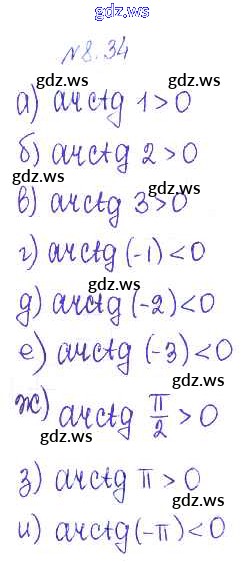 gdz.ws
N8.34
gdz.ws
gdz.ws
а) arctg 1 > 0
gdz.ws
б) arctg 2 > 0
gdz.ws
в) arctg 3 > 0
gdz.ws
г) arctg (-1) < 0
gdz.ws
д) arctg (-2) < 0
gdz.ws
gdz.ws
е) arctg (-3) < 0
gdz.ws
ж) arctg π/2 > 0
gdz.ws
з) arctg π > 0
gdz.ws
gdz.ws
и) arctg (-π) < 0
gdz.ws